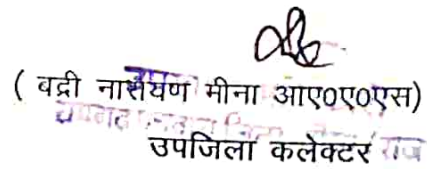 ( वद्री नारायण मीना आए०ए०एस)
उपजिला कलेक्टर